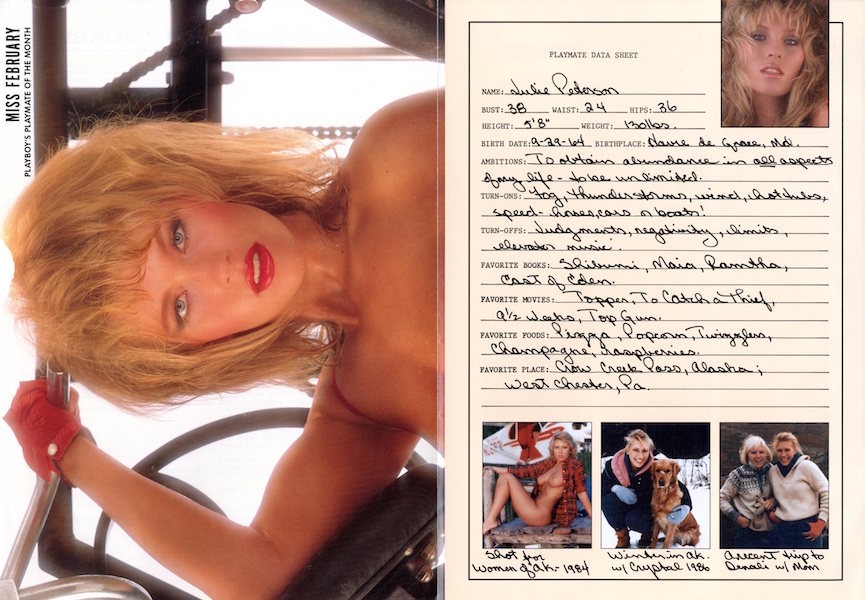 MISS FEBRUARY
PLAYBOY'S PLAYMATE OF THE MONTH
PLAYMATE DATA SHEET
NAME: Julie Peterson
BUST: 38 WAIST: 24 HIPS: 36
HEIGHT: 5'8" WEIGHT: 130lbs.
BIRTH DATE: 9-29-64 BIRTHPLACE: Havre de Grace, Md.
AMBITIONS: To obtain abundance in all aspects
of my life - to be unlimited.
TURN-ONS: Fog, thunderstorms, wind, hot tubs,
speed - horses, cars or boats!
TURN-OFFS: Judgments, negativity, limits,
"elevator music".
FAVORITE BOOKS: Shibumi, Maia, Ramtha,
East of Eden.
FAVORITE MOVIES: Topper, To Catch a Thief,
9½ Weeks, Top Gun.
FAVORITE FOODS: Pizza, Popcorn, Twizzlers,
Champagne, raspberries.
FAVORITE PLACE: Crow Creek Pass, Alaska;
West Chester, Pa.
Shot for
Women of Ak. - 1984
Winter in Ak.
w/ Crystal 1986
A recent trip to
Denali w/ Mom